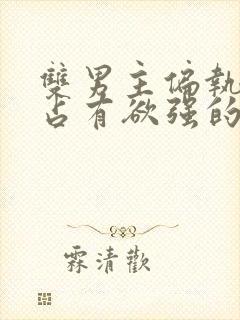 雙男主偏執
占有欲强的
霖清歡